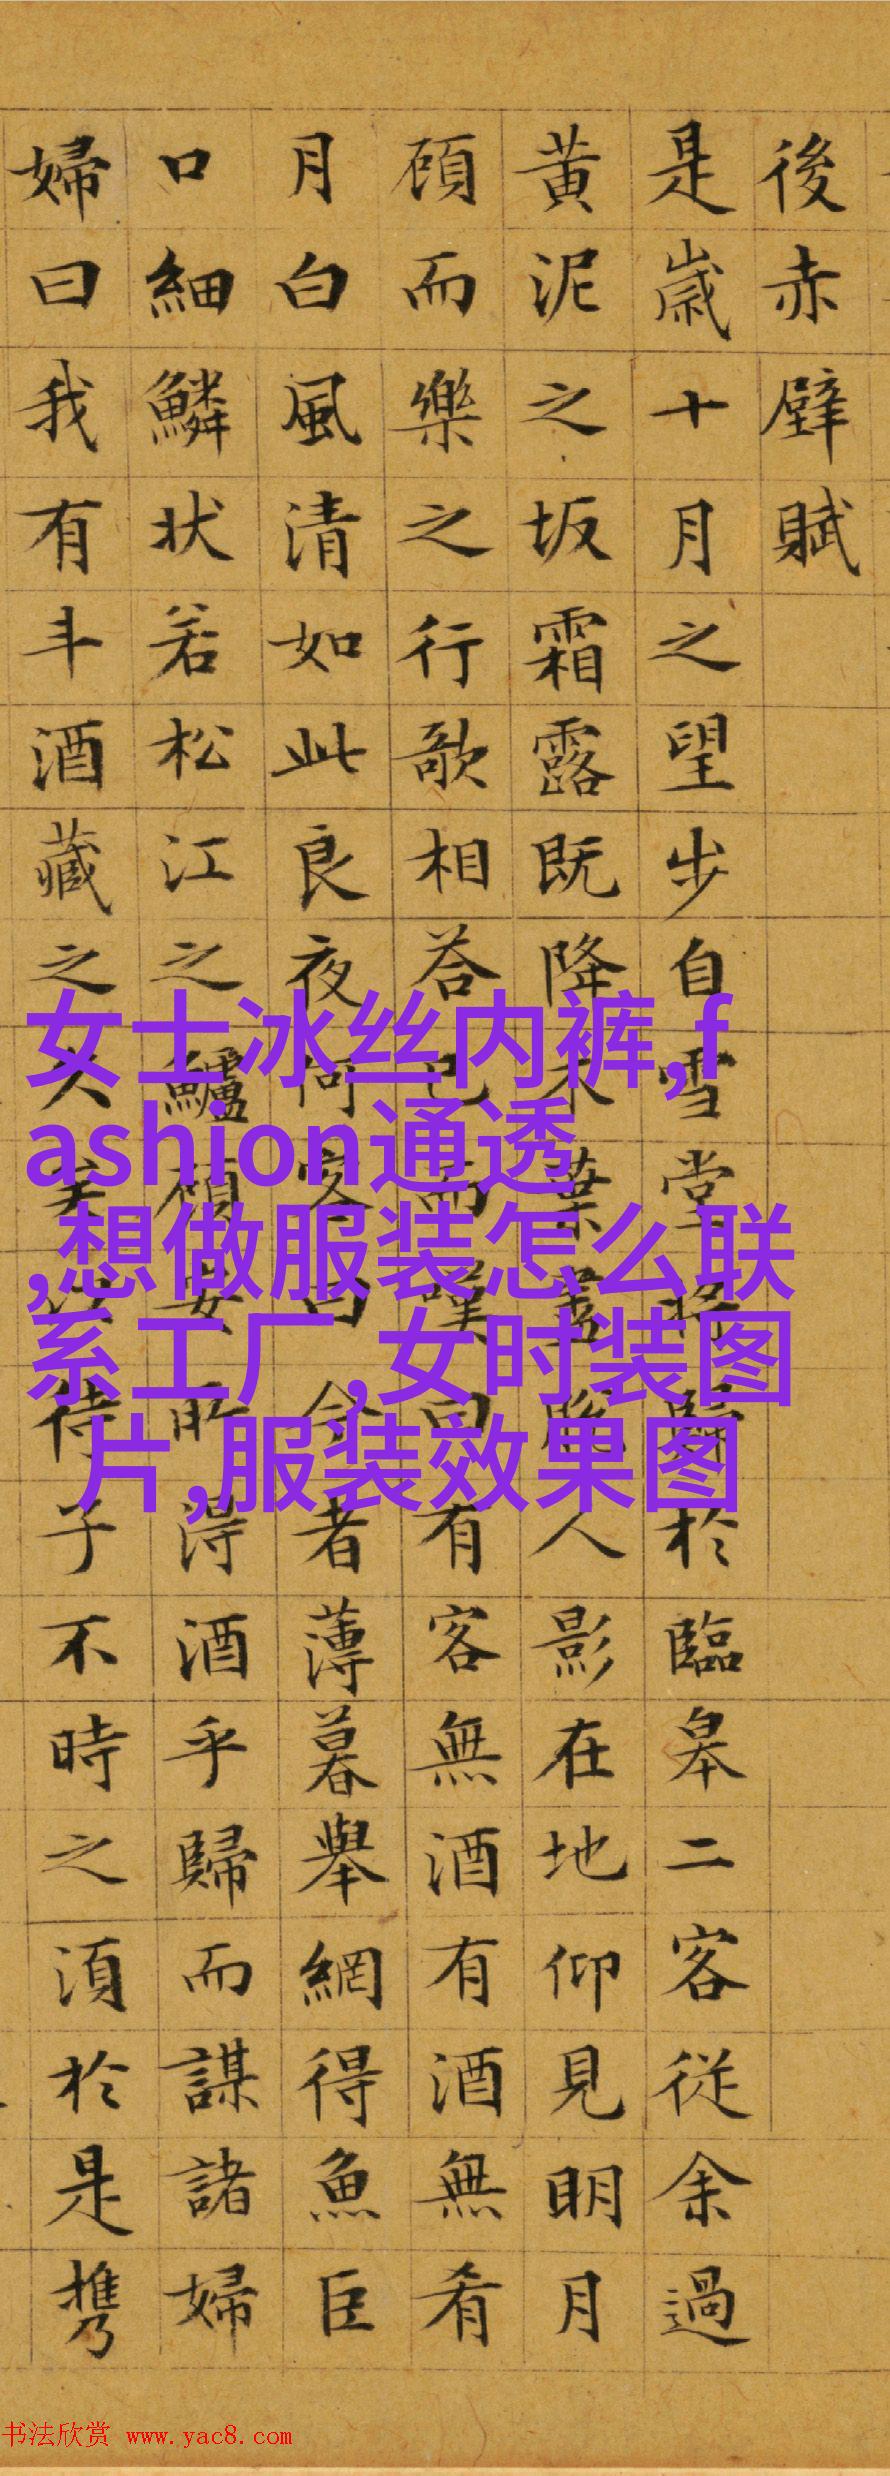 後赤壁賦
是歳十月之望步自雪堂將歸於臨皋二客従余過
黄泥之坂霜露既降木葉盡脱人影在地仰見明月
頋而樂之行歌相荅已而嘆曰有客無酒有酒無肴
月白風清如此良夜何客曰今者薄暮舉網得魚巨
口細鱗状若松江之鱸頋安所淂酒乎歸而謀諸婦
婦曰我有斗酒藏之久矣以待子不時之湏於是携
女士冰丝内裤,f
ashion通透
,想做服装怎么联
系工厂,女时装图
片,服装效果图
书法欣赏 www.yac8.com